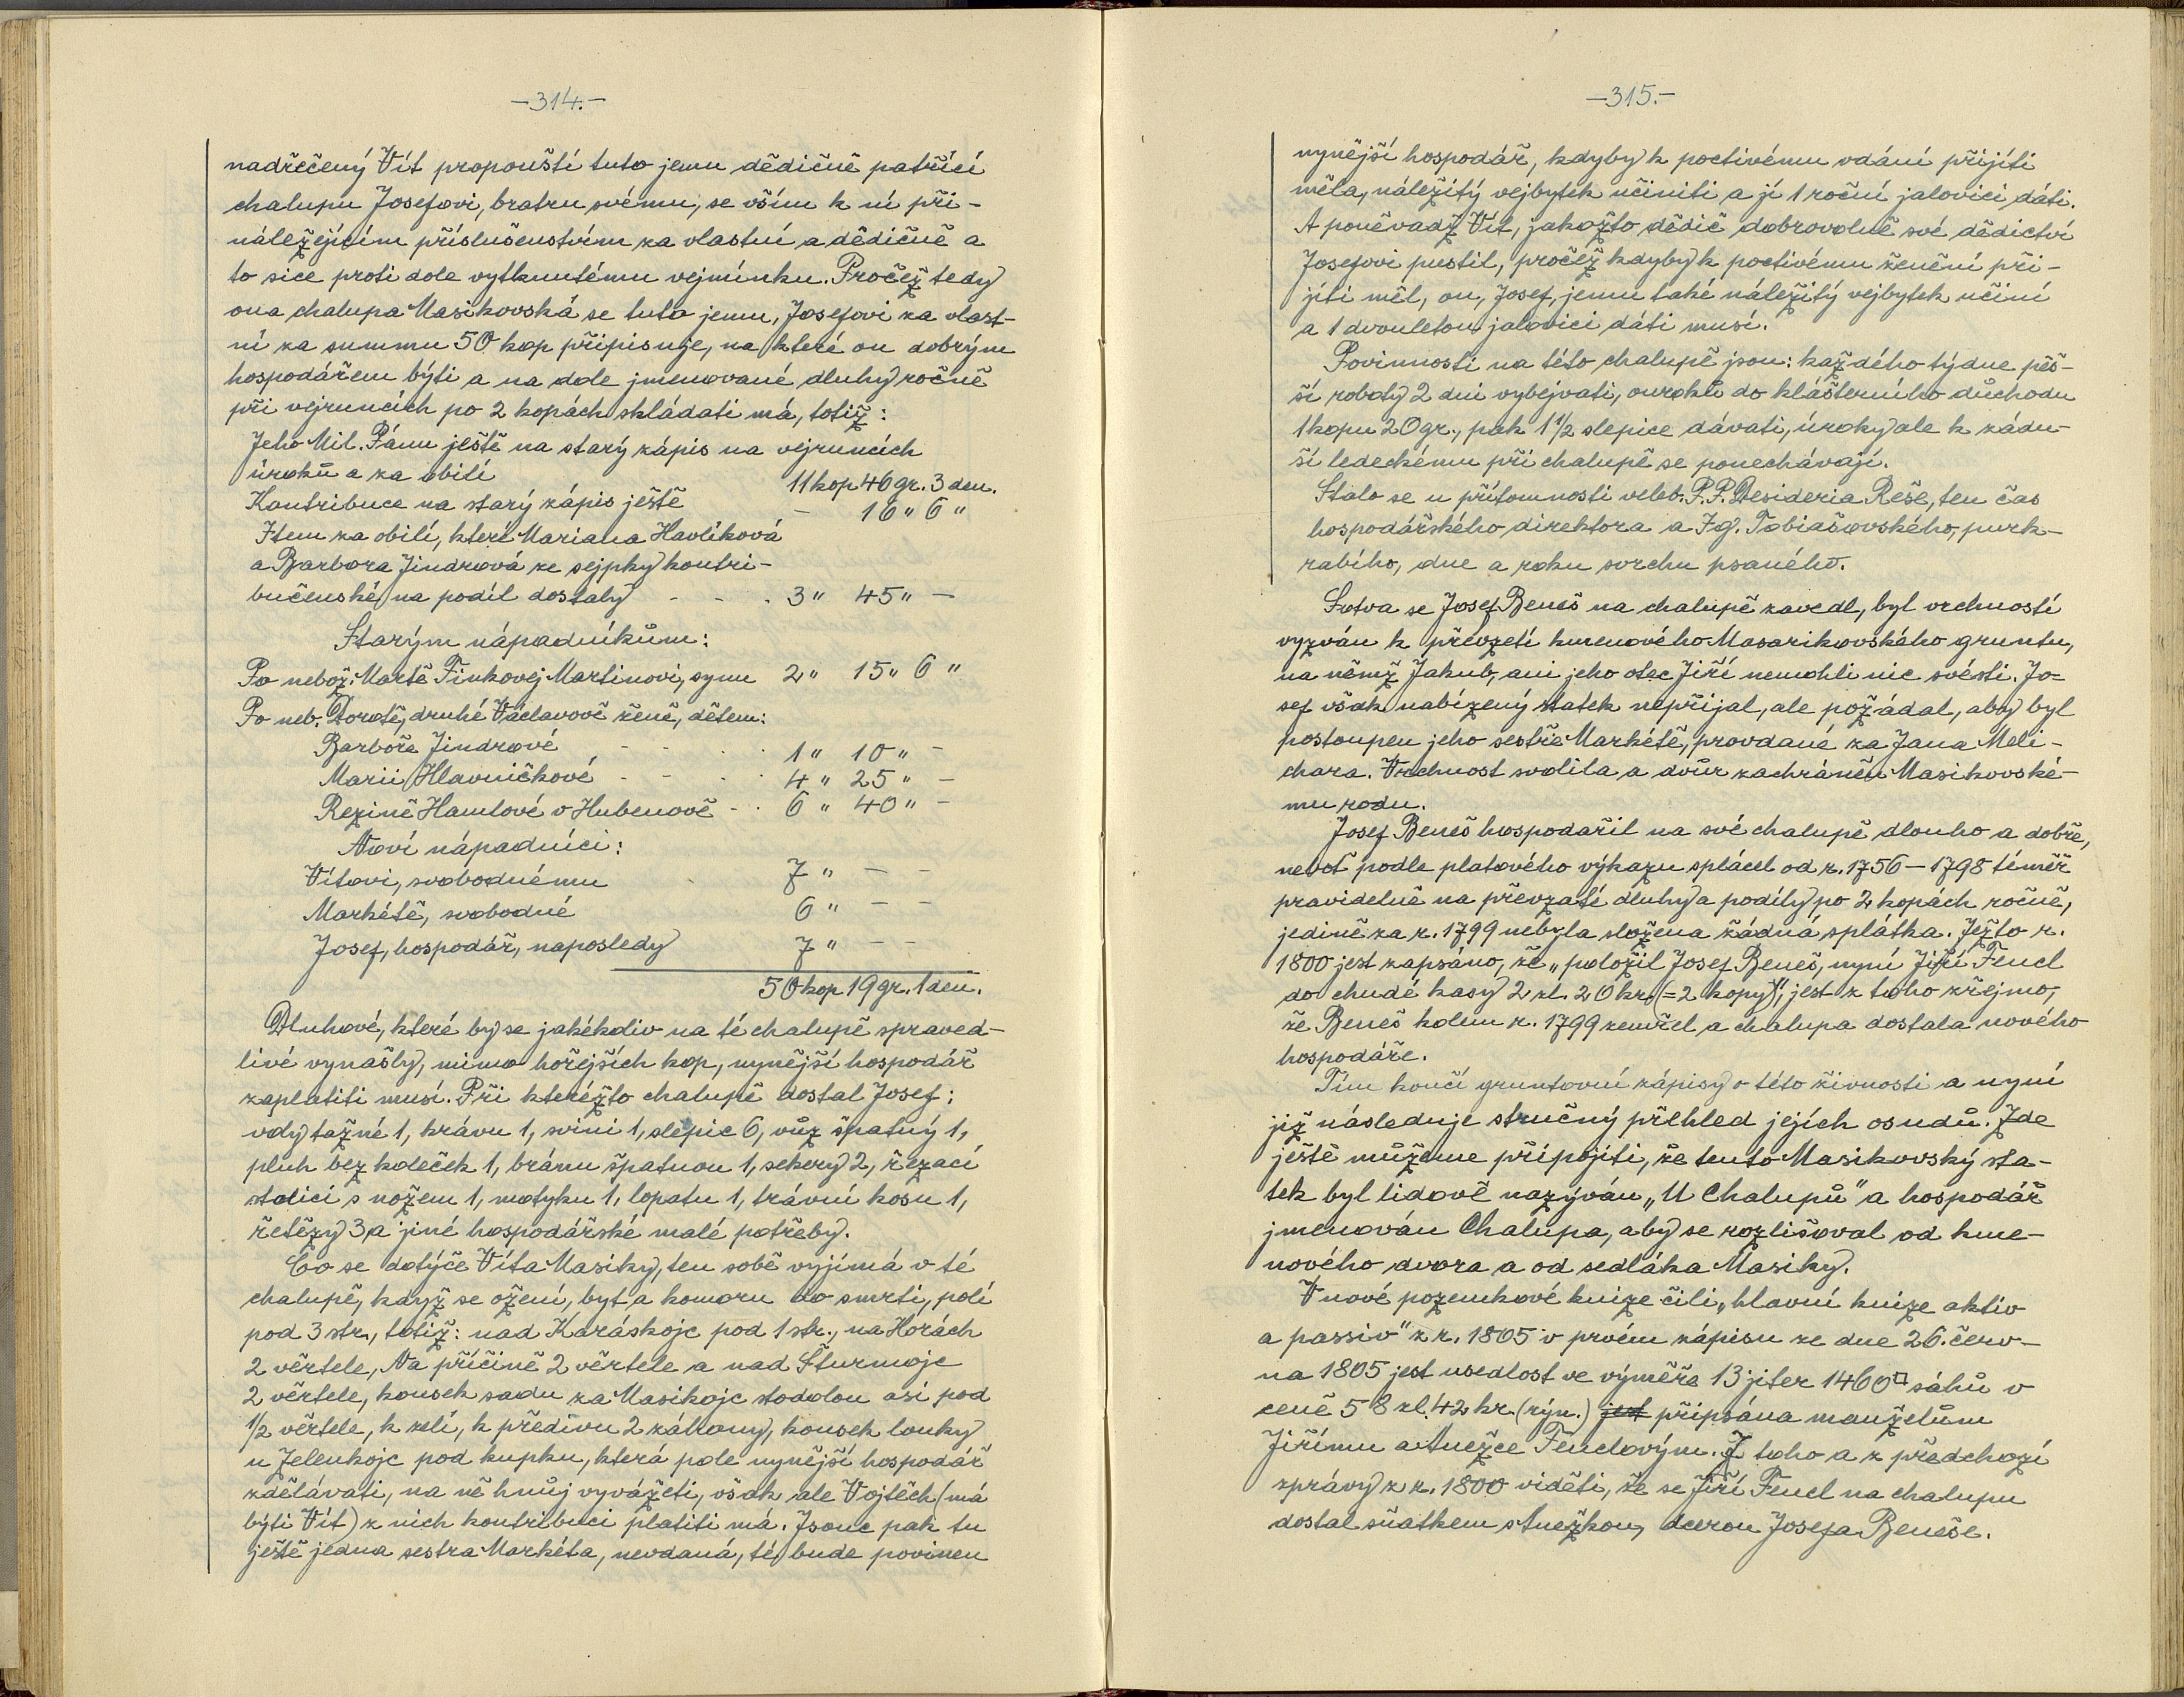 -314.-
nadřečený Vít propouští tuto jemu dědičně patřící
chalupu Josefovi, bratru svému, se vším k ní při-
náležejícím příslušenstvím za vlastní a dědičně a
to sice proti dole vytknutému vejmínku. Pročež tedy
ona chalupa Masikovská se tuto jemu, Josefovi za vlast-
ní za summu 50 kop připisuje, na které on dobrým
hospodářem býti a na dole jmenované dluhy ročně
při vejruncích po 2 kopách skládati má, totiž:
Jeho Mil. Pánu ještě na starý zápis na vejruncích
úroků a za obilí 11 kop 46 gr. 3 den.
Kontribuce na starý zápis ještě - 16 " 6 "
Item za obilí, které Mariana Havlíková
a Barbora Jindrová ze sejpky kontri-
bučenské na podíl dostaly - - . 3 " 45 " -
Starým nápadníkům:
Po nebož. Martě Finkovej Martinovi, synu 2 " 15 " 6 "
Po neb. Dorotě, druhé Václavově ženě, dětem:
Barboře Jindrové - - . . 1 " 10 " -
Marii Hlavničkové - - . 4 " 25 " -
Rezině Hamlové v Hubenově - . 6 " 40 " -
Noví nápadníci:
Vítovi, svobodnému . 7 " - -
Markétě, svobodné 6 " - -
Josef, hospodář, naposledy 7 " - -
50 kop 19 gr. 1 den.
Dluhové, které by se jakékoliv na té chalupě spraved-
livé vynašly, mimo hořejších kop, nynější hospodář
zaplatiti musí. Při kteréžto chalupě dostal Josef:
voly tažné 1, krávu 1, svini 1, slepic 6, vůz špatný 1,
pluh bez koleček 1, bránu špatnou 1, sekery 2, řezací
stolici s nožem 1, motyku 1, lopatu 1, trávní kosu 1,
řetězy 3 a jiné hospodářské malé potřeby.
Co se dotýče Víta Masiky, ten sobě vyjímá v té
chalupě, když se ožení, byt a komoru do smrti, polí
pod 3 str., totiž: nad Karáskojc pod 1 str., na Horách
2 věrtele, Na příčině 2 věrtele a nad Šturmojc
2 věrtele, kousek sadu za Masikojc stodolou asi pod
1/2 věrtele, k zelí, k předivu 2 záhony, kousek louky
u Jelenkojc pod kupku, která pole nynější hospodář
zdělávati, na ně hnůj vyvážeti, však ale Vojtěch (má
býti Vít) z nich kontribuci platiti má. Jsouc pak tu
ještě jedna sestra Markéta, nevdaná, té bude povinen
-315.-
nynější hospodář, kdyby k poctivému vdání přijíti
měla, náležitý vejbytek učiniti a jí 1 roční jalovici dáti.
A poněvadž Vít, jakožto dědič dobrovolně své dědictví
Josefovi pustil, pročež kdyby k poctivému ženění při-
jíti měl, on, Josef, jemu také náležitý vejbytek učiní
a 1 dvouletou jalovici dáti musí.
Povinnosti na této chalupě jsou: každého týdne pěš-
ší roboty 2 dni vybejvati, ouroků do klášterního důchodu
1 kopu 20 gr., pak 1 1/2 slepice dávati, úroky ale k zádu-
ší ledeckému při chalupě se ponechávají.
Stalo se u přítomnosti veleb. P.P. Desideria Reše, ten čas
hospodářského direktora a Ig. Tobiašovského, purk-
rabího, dne a roku svrchu psaného.
Sotva se Josef Beneš na chalupě zavedl, byl vrchností
vyzván k převzetí kmenového Masarikovského gruntu,
na němž Jakub, ani jeho otec Jiří nemohli nic svésti. Jo-
sef však nabízený statek nepřijal, ale požádal, aby byl
postoupen jeho sestře Markétě, provdané za Jana Meli-
chara. Vrchnost svolila a dvůr zachráněn Masikovské-
mu rodu.
Josef Beneš hospodařil na své chalupě dlouho a dobře,
neboť podle platového výkazu splácel od r. 1756 – 1798 téměř
pravidelně na převzaté dluhy a podíly po 2 kopách ročně,
jedině za r. 1799 nebyla složena žádná splátka. Ježto r.
1800 jest zapsáno, že „položil Josef Beneš, nyní Jiří Fencl
do chudé kasy 2 zl. 20 kr. (=2 kopy)", jest z toho zřejmo,
že Beneš kolem r. 1799 zemřel a chalupa dostala nového
hospodáře.
Tím končí gruntovní zápisy o této živnosti a nyní
již následuje stručný přehled jejích osudů. Zde
ještě můžeme připojiti, že tento Masikovský sta-
tek byl lidově nazýván „U Chalupů" a hospodář
jmenován Chalupa, aby se rozlišoval od kme-
nového dvora a od sedláka Masiky.
V nové pozemkové knize čili „hlavní knize aktiv
a passiv" z r. 1805 v prvém zápisu ze dne 26. červ-
na 1805 jest usedlost ve výměře 13 jiter 1460□ sáhů v
ceně 58 zl. 42 kr. (rýn.) jest připsána manželům
Jiřímu a Anežce Fenclovým. Z toho a z předchozí
zprávy z r. 1800 viděti, že se Jiří Fencl na chalupu
dostal sňatkem s Anežkou, dcerou Josefa Beneše.